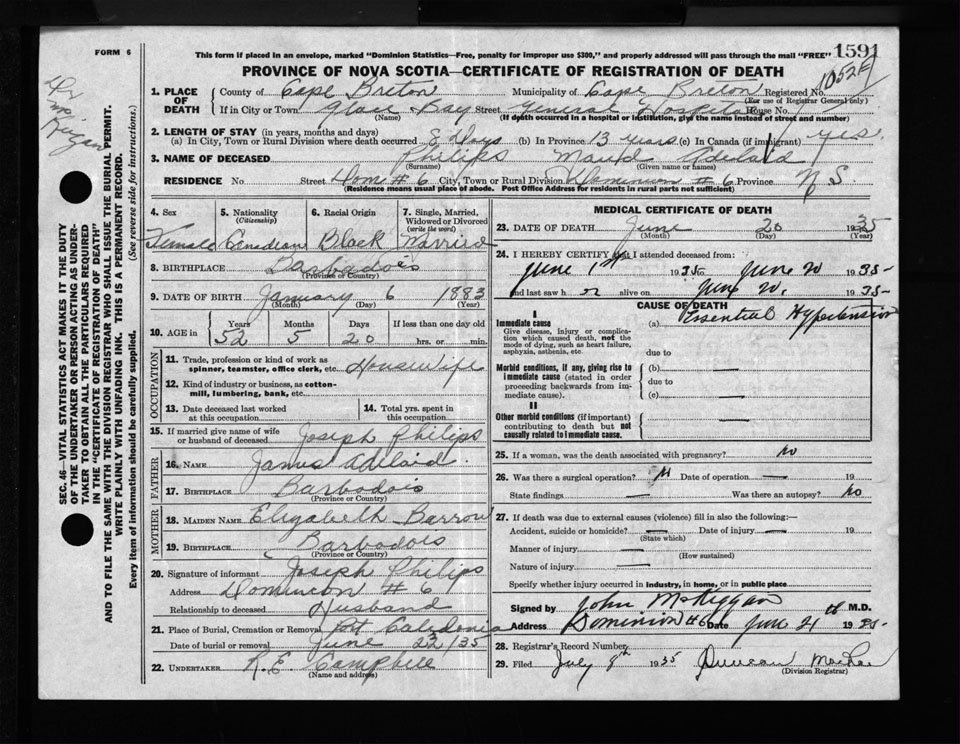 FORM 6
This form if placed in an envelope, marked "Dominion Statistics—Free, penalty for improper use $300," and properly addressed will pass through the mail "FREE"
1591
PROVINCE OF NOVA SCOTIA—CERTIFICATE OF REGISTRATION OF DEATH
1. PLACE OF DEATH
County of Cape Breton Municipality of Cape Breton Registered No. 1052E
(For use of Registrar General only)
If in City or Town Glace Bay Street General Hospital House No.
(Name) (If death occurred in a hospital or institution, give the name instead of street and number)
2. LENGTH OF STAY (in years, months and days)
(a) In City, Town or Rural Division where death occurred 8 Days (b) In Province 13 years (c) In Canada (if immigrant) yes
3. NAME OF DECEASED Philips Maud Adelaid
(Surname) (Given name or names)
RESIDENCE No Street Dom # 6 City, Town or Rural Division Dominion # 6 Province N S
(Residence means usual place of abode. Post Office Address for residents in rural parts not sufficient)
4. Sex Female
5. Nationality (Citizenship) Canadian
6. Racial Origin Black
7. Single, Married, Widowed or Divorced (write the word) Married
8. BIRTHPLACE Barbadois
(Province or Country)
9. DATE OF BIRTH January 6 1883
(Month) (Day) (Year)
10. AGE in Years 52 Months 5 Days 20 If less than one day old hrs. or min.
OCCUPATION
11. Trade, profession or kind of work as spinner, teamster, office clerk, etc. Housewife
12. Kind of industry or business, as cotton-mill, lumbering, bank, etc.
13. Date deceased last worked at this occupation
14. Total yrs. spent in this occupation
15. If married give name of wife or husband of deceased Joseph Philips
FATHER
16. NAME James Adelaid
17. BIRTHPLACE Barbadois
(Province or Country)
MOTHER
18. MAIDEN NAME Elizabeth Barrow
19. BIRTHPLACE Barbadois
(Province or Country)
20. Signature of informant Joseph Philips
Address Dominion # 6
Relationship to deceased Husband
21. Place of Burial, Cremation or Removal Port Caledonia
Date of burial or removal June 22/35
22. UNDERTAKER
(Name and address)
MEDICAL CERTIFICATE OF DEATH
23. DATE OF DEATH June 20 1935
(Month) (Day) (Year)
24. I HEREBY CERTIFY that I attended deceased from:
June 1st 1935 to June 20 1935
and last saw h er alive on June 20, 1935
CAUSE OF DEATH
I
Immediate cause
Give disease, injury or complication which caused death, not the mode of dying, such as heart failure, asphyxia, asthenia, etc.
(a) Essential Hypertension
due to
Morbid conditions, if any, giving rise to immediate cause (stated in order proceeding backwards from immediate cause).
(b) —
due to
(c) —
II
Other morbid conditions (if important) contributing to death but not causally related to immediate cause.
25. If a woman, was the death associated with pregnancy? no
26. Was there a surgical operation? N Date of operation — 19
State findings — Was there an autopsy? No
27. If death was due to external causes (violence) fill in also the following:—
Accident, suicide or homicide? — Date of injury — 19
(State which)
Manner of injury —
(How sustained)
Nature of injury —
Specify whether injury occurred in industry, in home, or in public place
Signed by John McKiggan M.D.
Address Dominion #6 Date June 21st 1935
28. Registrar's Record Number
29. Filed July 8th 1935 Duncan
(Division Registrar)
SEC. 46—VITAL STATISTICS ACT MAKES IT THE DUTY
OF THE UNDERTAKER OR PERSON ACTING AS UNDER-
TAKER TO OBTAIN ALL THE PARTICULARS REQUIRED
IN THE "CERTIFICATE OF REGISTRATION OF DEATH"
AND TO FILE THE SAME WITH THE DIVISION REGISTRAR WHO SHALL ISSUE THE BURIAL PERMIT.
WRITE PLAINLY WITH UNFADING INK. THIS IS A PERMANENT RECORD.
Every item of information should be carefully supplied. (See reverse side for instructions.)